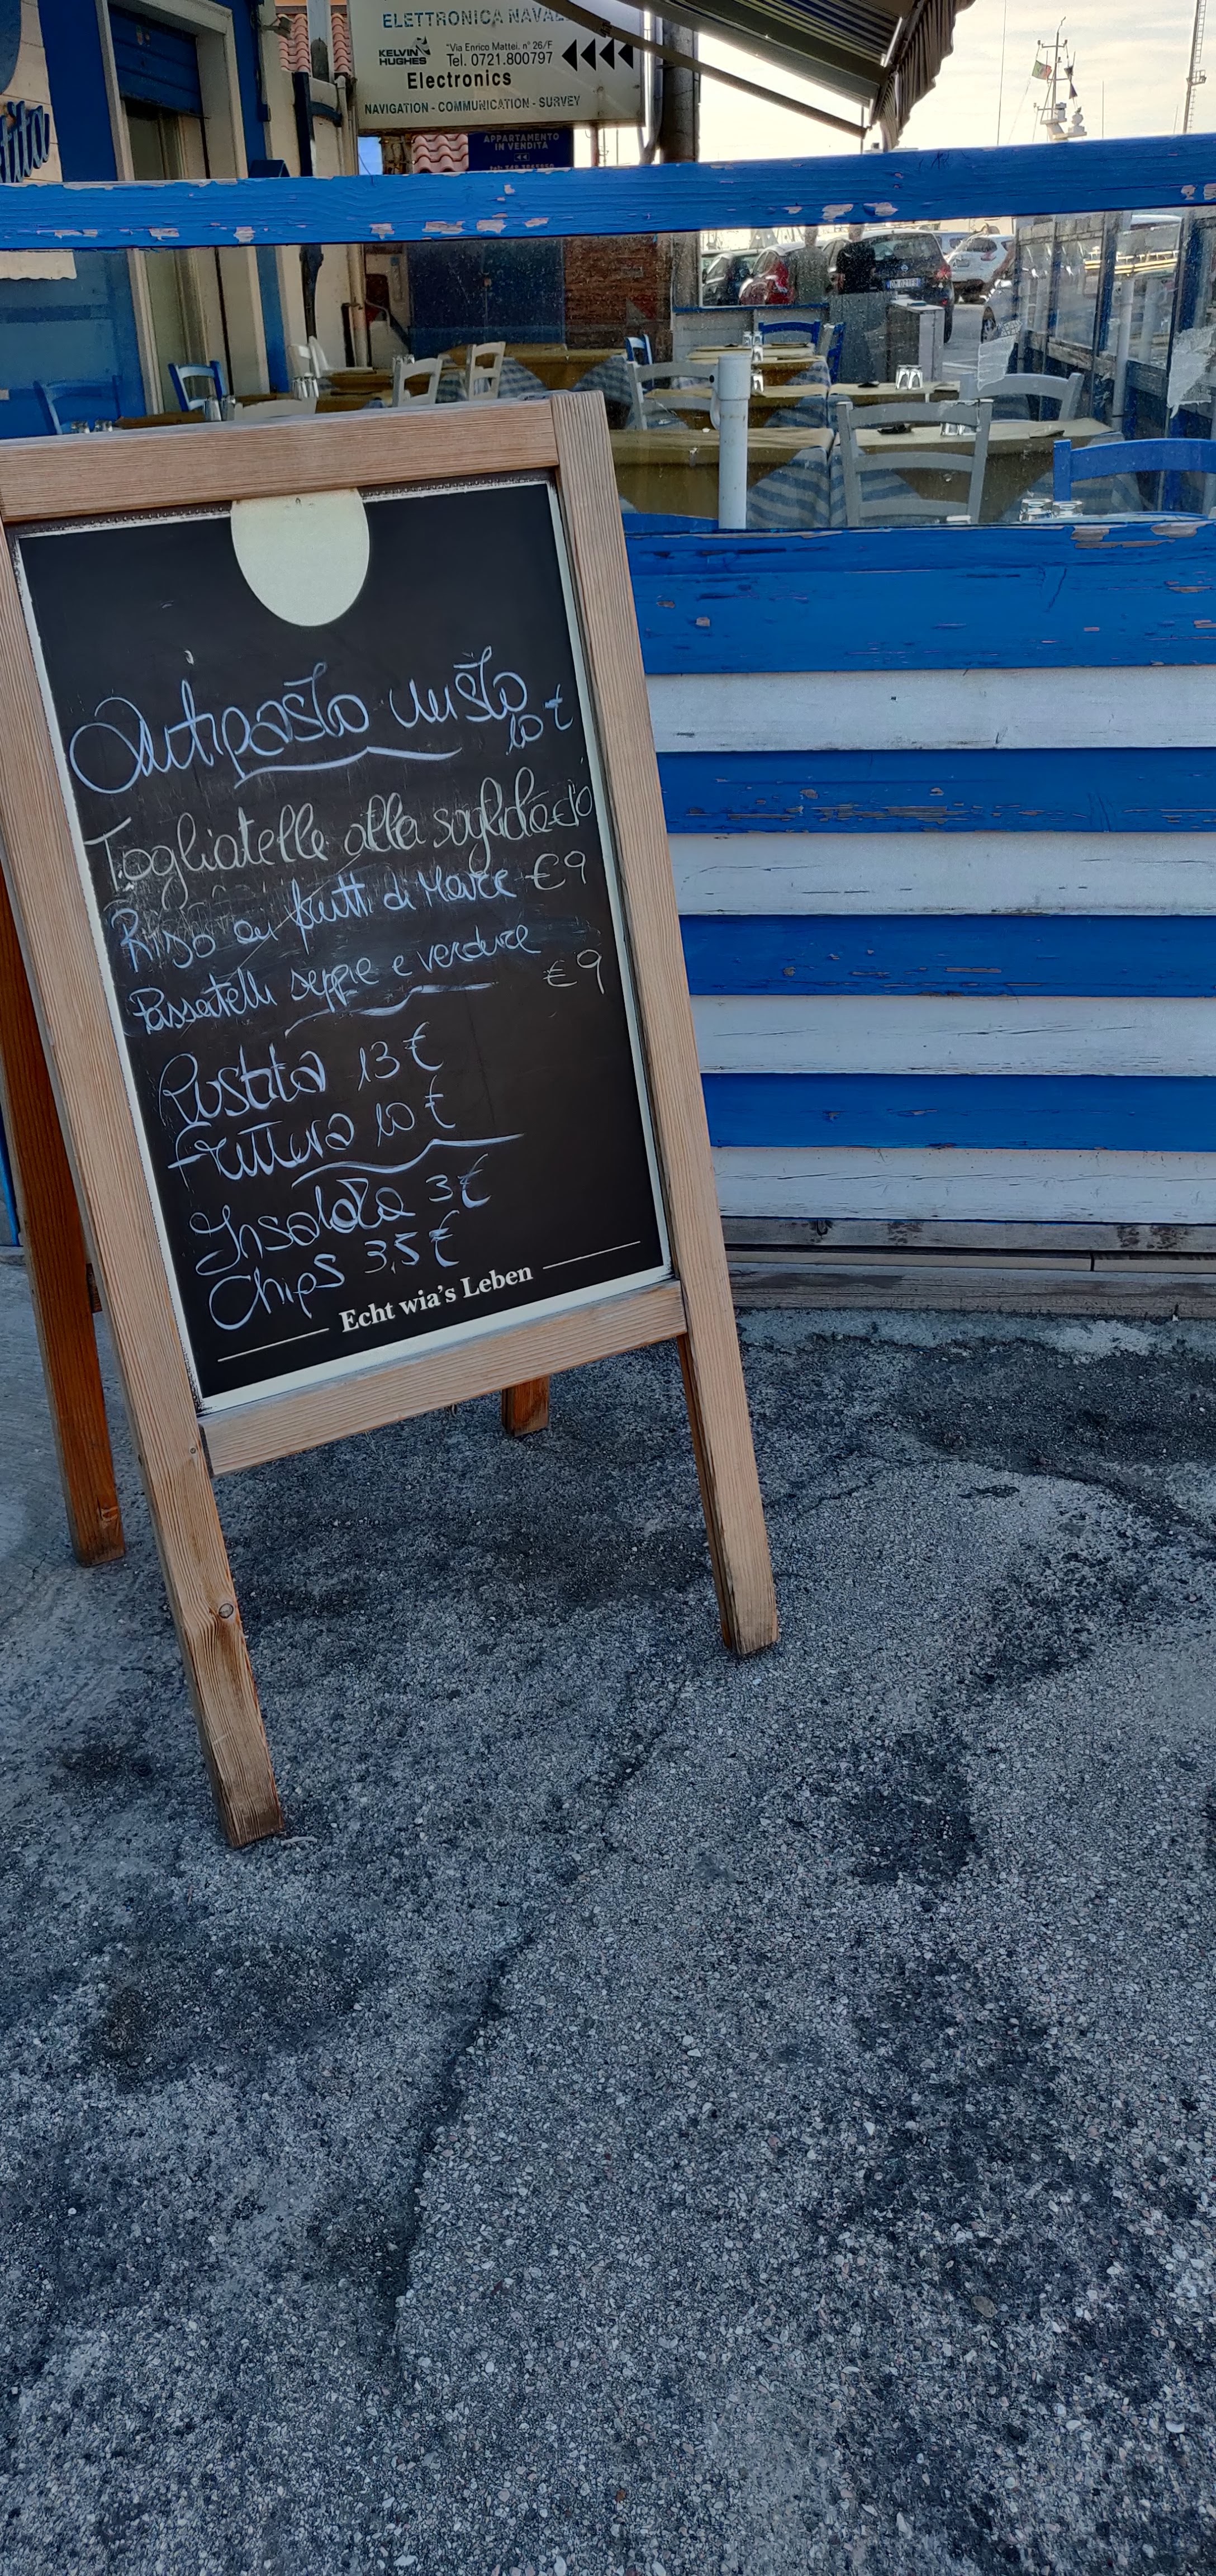 ELETTRONICA NAVALE
KELVIN HUGHES
"Via Enrico Mattei, n° 26/F
Tel. 0721.800797
Electronics
NAVIGATION - COMMUNICATION - SURVEY
APPARTAMENTO
IN VENDITA
Antipasto misto
10 €
Tagliatelle alla sogliola €10
Riso ai frutti di Mare €9
Passatelli seppie e verdure
€9
Rustita 13 €
Frittura 10 €
Insalata 3 €
Chips 3,5 €
Echt wia's Leben